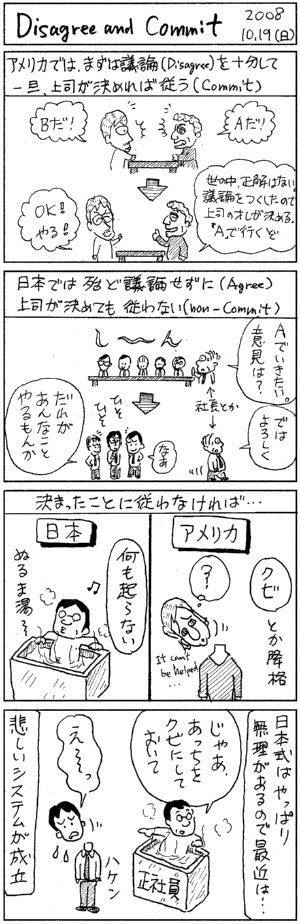 Disagree and Commit
2008
10.19(日)
アメリカでは、まずは議論(Disagree)を十分して
一旦、上司が決めれば従う(Commit)
Bだ!
Aだ!
世の中、正解はない
議論をつくしたので
上司のオレが決める。
「A」で行くぞ
OK!
やる!
日本では殆ど議論せずに(Agree)
上司が決めても従わない(non-Commit)
し〜〜ん
Aでいきたい。
意見は?
社長とか
では
よろしく
ひそ
ひそ
なあ
だれが
あんなこと
やるもんか
決まったことに従わなければ…
アメリカ
クビ
とか降格
?
It can't
be helped
...
日本
何も起らない
ぬるま湯〜
♪
日本式はやっぱり
無理があるので最近は…
じゃあ、
あっちを
クビにして
おいて
正社員
え〜〜っ
ハケン
悲しいシステムが成立